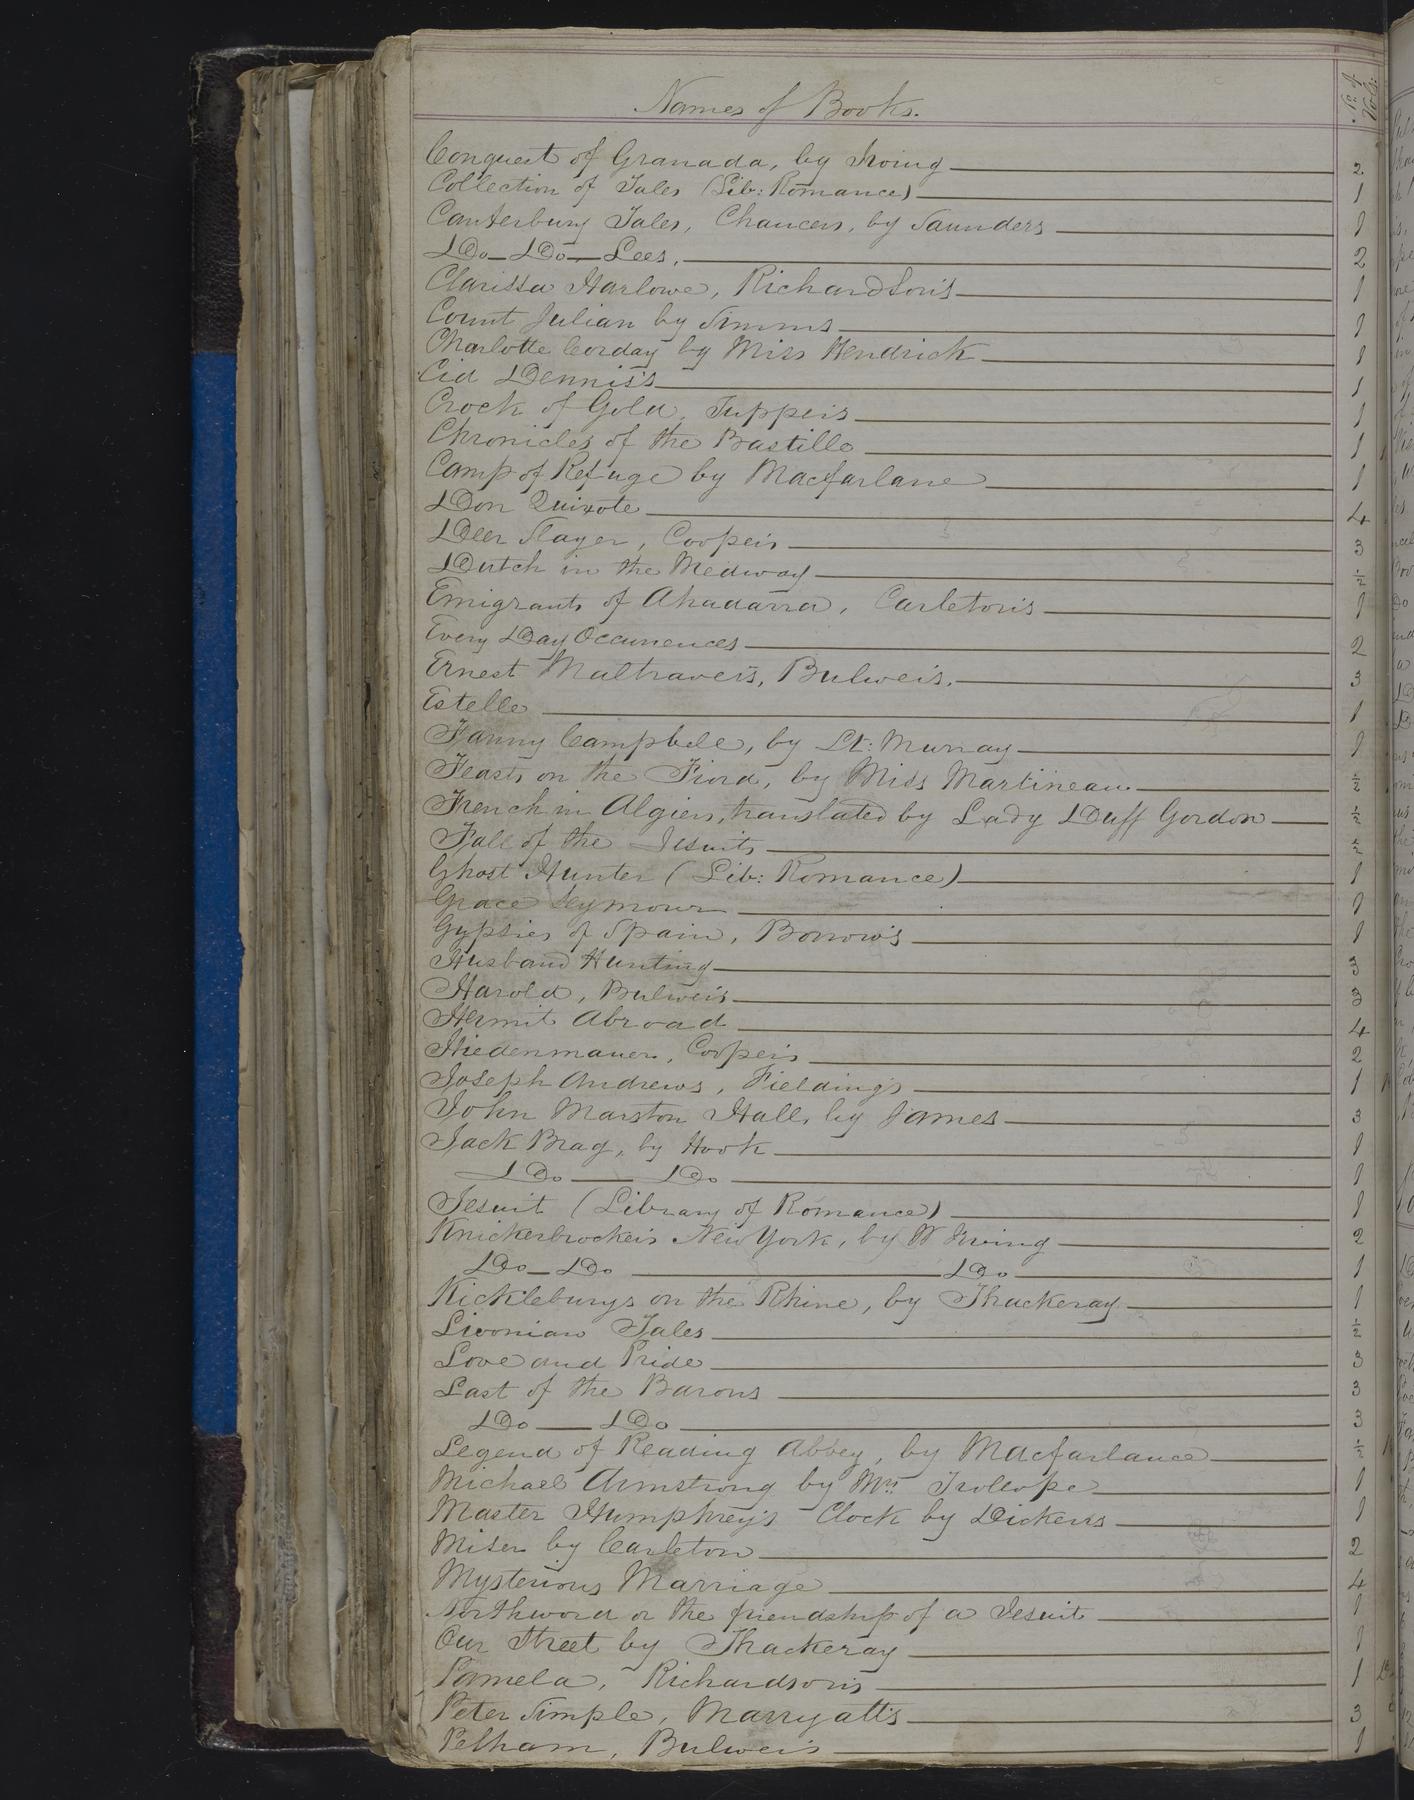 Names of Books.
No. of Vols:
Conquest of Granada, by Irving 2
Collection of Tales (Lib: Romance) 1
Canterbury Tales, Chaucers, by Saunders 1
Do Do Lees, 2
Clarissa Harlowe, Richardson's 1
Count Julian by Simms 1
Charlotte Corday by Miss Kendrick 1
Cid Dennis's 1
Crock of Gold, Tupper's 1
Chronicles of the Bastille 1
Camp of Refuge by Macfarlane 1
Don Quixote 4
Deer Slayer, Cooper's 3
Dutch in the Medway ½
Emigrants of Ahadarra, Carleton's 1
Every Day Occurrences 2
Ernest Maltravers, Bulwer's. 3
Estelle 1
Fanny Campbele, by Lt: Murray 1
Feasts on the Fiord, by Miss Martineau ½
French in Algiers, translated by Lady Duff Gordon ½
Fall of the Jesuits ½
Ghost Hunter (Lib: Romance) 1
Grace Seymour 1
Gypsies of Spain, Borrow's 1
Husband Hunting 3
Harold, Bulwer's 3
Hermit Abroad 4
Hiedenmauer, Cooper's 2
Joseph Andrews, Fielding's 1
John Marston Hall, by James 3
Jack Brag, by Hook 1
Do Do 1
Jesuit (Library of Romance) 1
Knickerbocker's New York, by W Irving 2
Do Do Do 1
Kickleburys on the Rhine, by Thackeray 1
Livonian Tales ½
Love and Pride 3
Last of the Barons 3
Do Do 3
Legend of Reading Abbey, by Macfarlance ½
Michael Armstrong by Mrs: Trollope 1
Master Humphrey's Clock by Dickens 1
Miser by Carleton 2
Mysterious Marriage 4
Northword or the friendship of a Jesuit 1
Our Street by Thackeray 1
Pamela, Richardson's 1
Peter Simple, Marryatt's 3
Pelham, Bulwer's 1